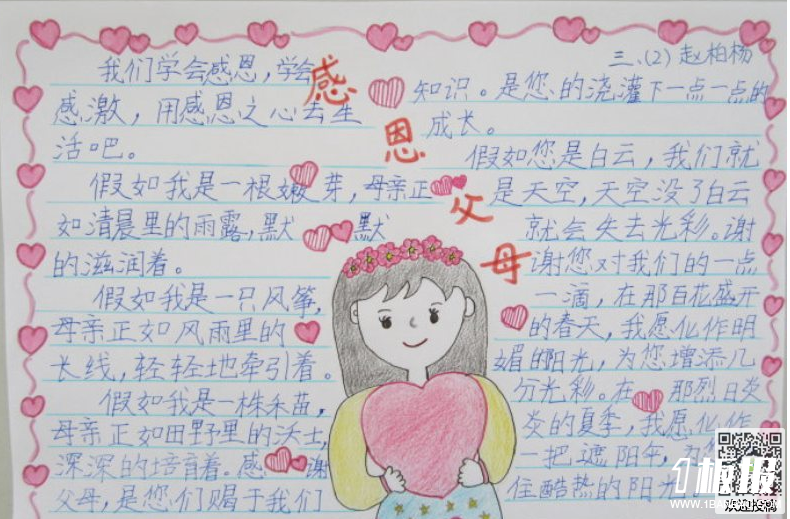 三、(2) 赵柏杨
感恩父母
我们学会感恩，学会
感激，用感恩之心去生
活吧。
假如我是一根嫩芽，母亲正
如清晨里的雨露，默默
的滋润着。
假如我是一只风筝，
母亲正如风雨里的
长线，轻轻地牵引着。
假如我是一株禾苗，
母亲正如田野里的沃土，
深深的培育着。感谢
父母，是您们赐于我们
知识。是您的浇灌下一点一点的
成长。
假如您是白云，我们就
是天空，天空没了白云
就会失去光彩。谢
谢您对我们的一点
一滴，在那百花盛开
的春天，我愿化作明
媚的阳光，为您增添几
分光彩。在那烈日炎
炎的夏季，我愿化作
一把遮阳伞，为
住酷热的阳光
1板报